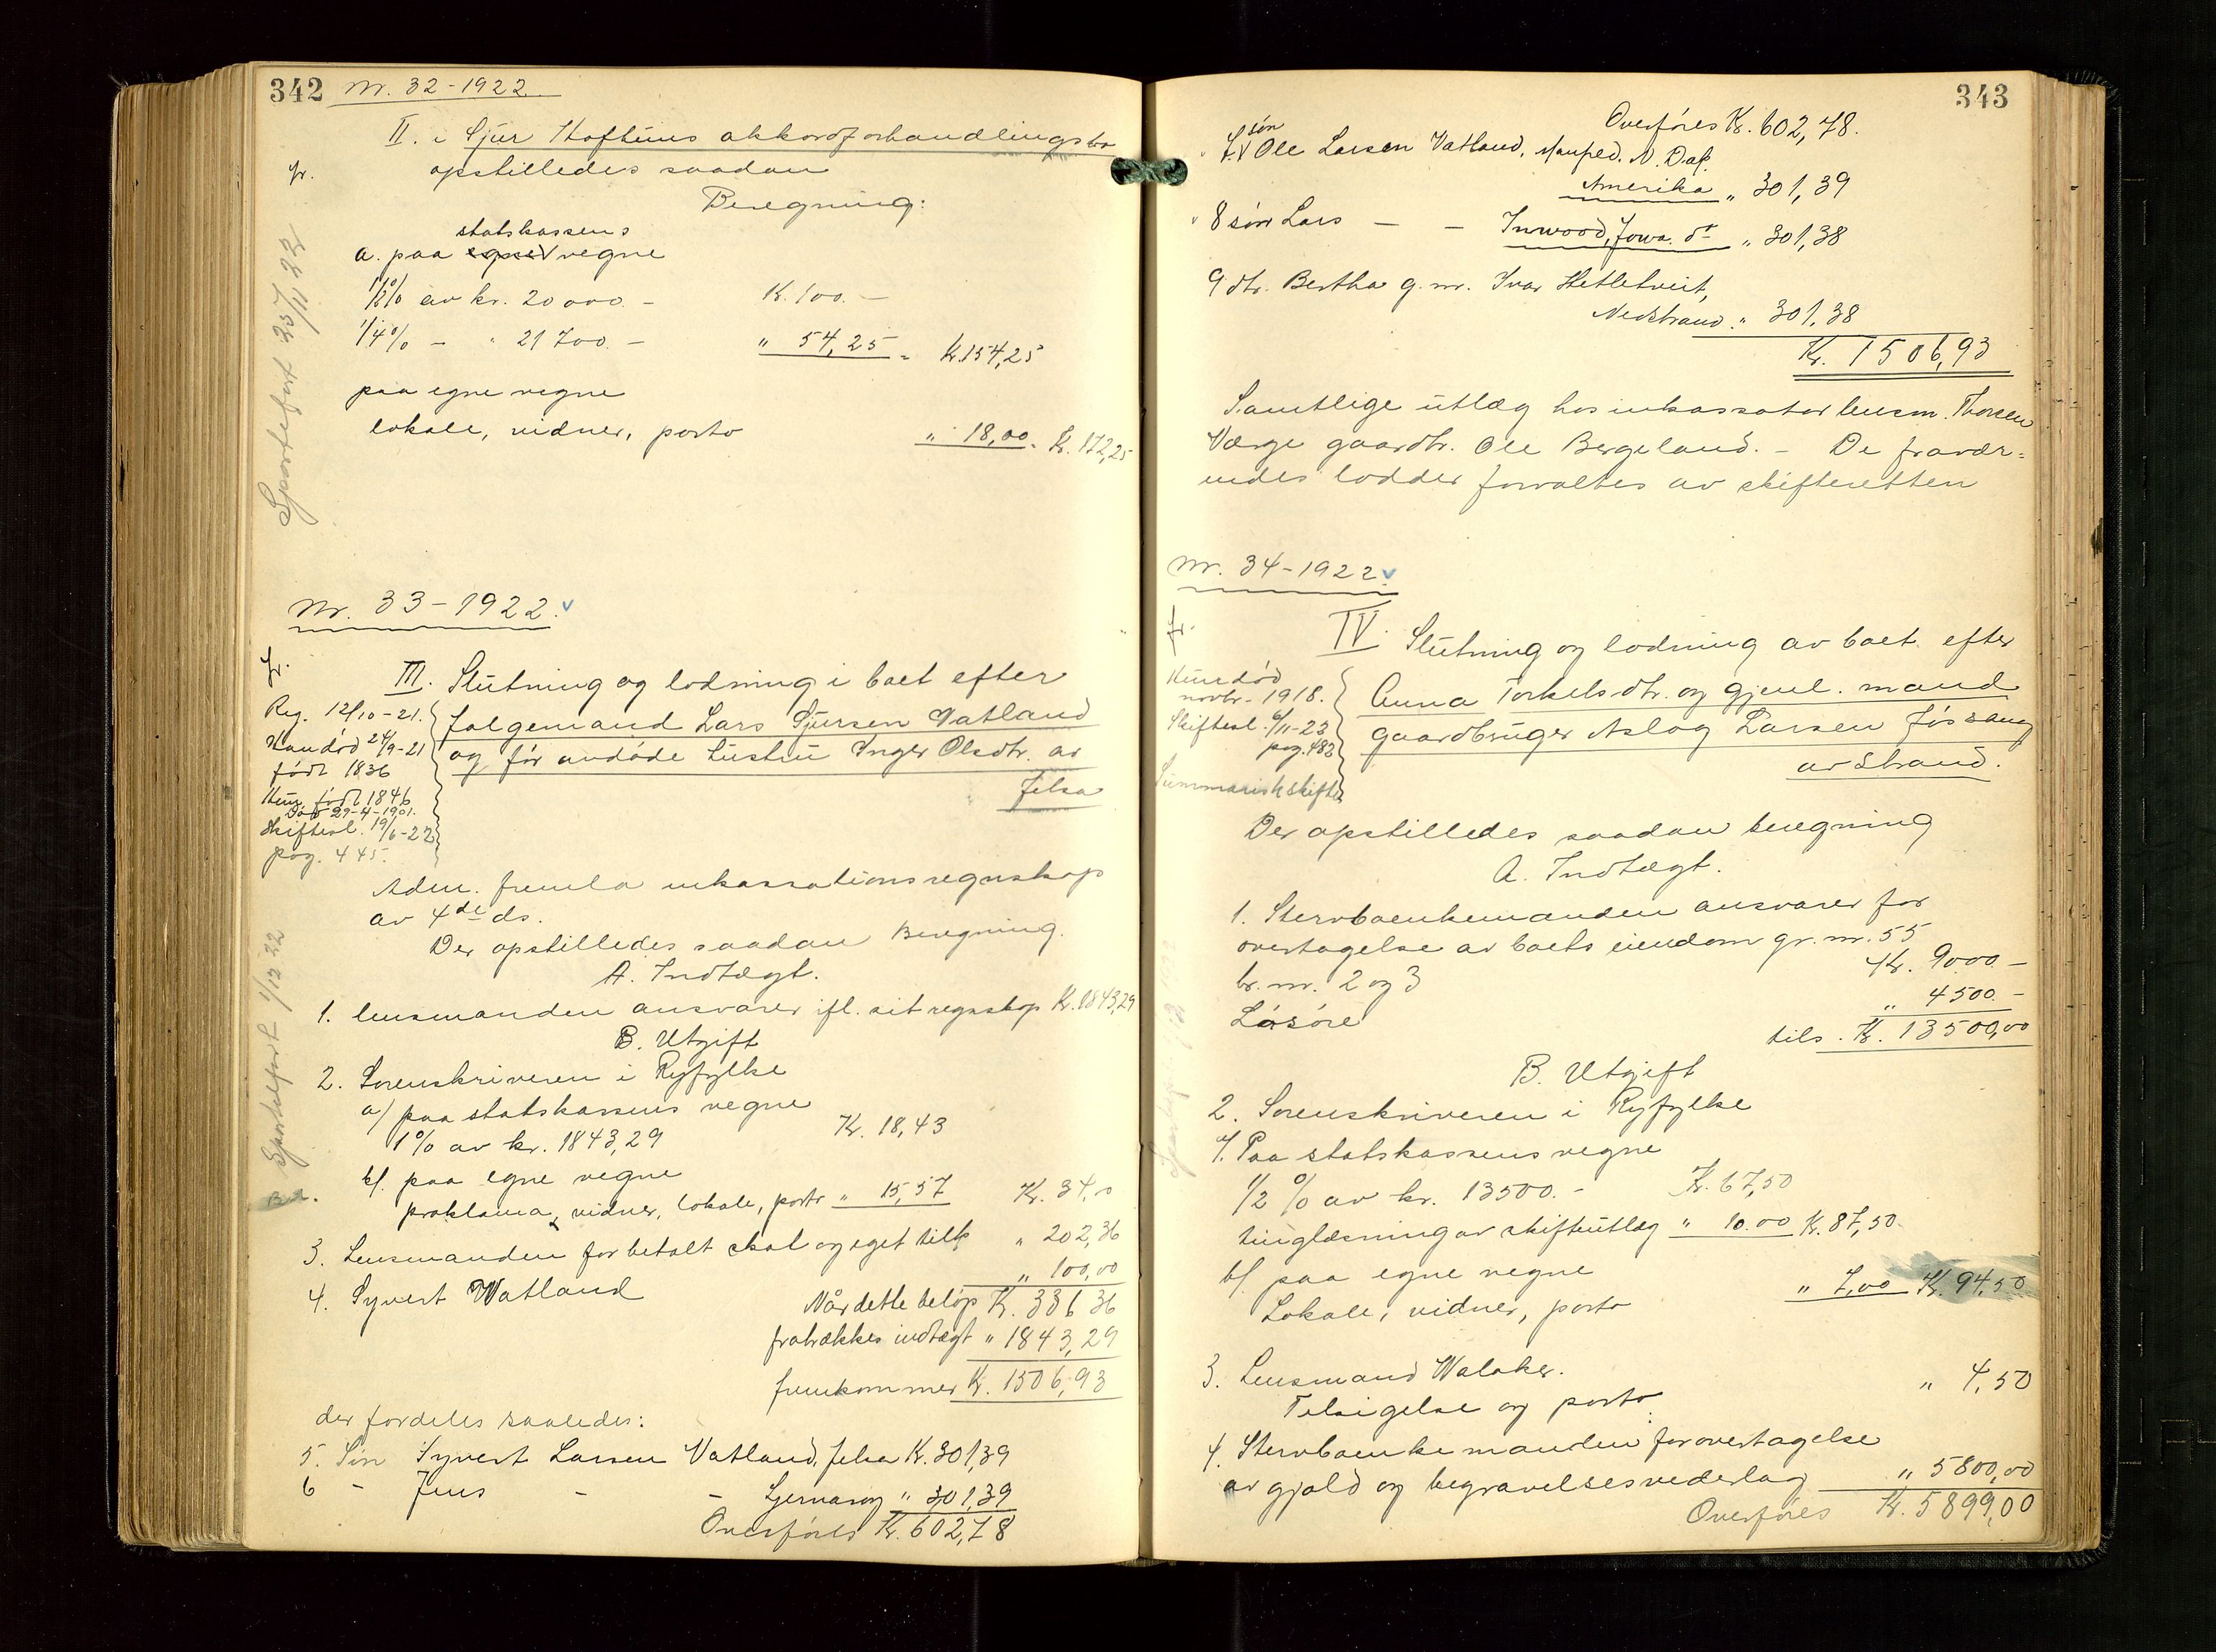 342 Nr. 32-1922
II. i Sjur Hoftuns akkordforhandlingsbo
fr. opstilledes saadan
Beregning:
statskassens
a. paa egne vegne
1/2% av kr. 20000.- K. 100.-
1/4% - " 21700.- " 54,25 = Kr. 154,25
paa egne vegne
lokale, vidner, porto " 18,00. Kr. 172,25
Sportelført 25/11 22
Nr. 33-1922. v
fr.
III. Slutning og lodning i boet efter
folgemand Lars Sjursen Vatland
og før avdøde hustru Inger Olsdtr. av
Jelsa
Reg. 12/10-21.
Han død 24/9-21
født 1836
Hun født 1846
Død 29-4-1901.
Skiftesl. 19/6-22
pag. 445.
Adm. fremla inkassationsregnskap
av 4de ds.
Der opstilledes saadan Beregning.
A. Indtægt.
1. lensmanden ansvarer ifl. sit regnskap Kr. 1843,29
B. Utgift
2. Sorenskriveren i Ryfylke
a/ paa statskassens vegne
1% av kr. 1843,29 Kr. 18,43
b/. paa egne vegne
proklama, vidner, lokale, porto " 15,57 Kr. 34,0
3. Lensmanden for betalt skat og eget tilk " 202,36
4. Syvert Watland " 100,00
Når dette beløp Kr. 336 36
fratrækkes indtægt " 1843,29
fremkommer Kr. 1506,93
Sportelført 1/12 22
der fordeles saaledes:
5. Søn Syvert Larsen Vatland, Jelsa Kr. 301,39
6 - Jens - - Sjernarøy " 301,39
Overføres Kr. 602,78
343
Overføres Kr. 602,78.
søn
7. v Ole Larsen Vatland, Manfred. N. Dak.
Amerika " 301,39
8 søn Lars - - Inwood, Jowa. do " 301,38
9 dtr. Bertha g. m. Ivar Hetletveit,
Nedstrand " 301,38
Kr. 1506,93
Samtlige utlæg hos inkassator lensm. Thorsen
Værge gaardbr. Ole Bergeland. - De fravær=
endes lodder forvaltes av skifteretten
Nr. 34-1922 v
fr.
IV. Slutning og lodning av boet efter
Anna Torkelsdtr. og gjenl. mand
gaardbruger Aslag Larsen Jøssang
av Strand.
Hun død
novbr. 1918.
Skiftesl. 6/11-23
pag. 482
Summarisk skifte
Der opstilledes saadan beregning
A. Indtægt.
1. Stervboenkemanden ansvarer for
overtagelse av boets eiendom gr. nr. 55
br. nr. 2 og 3 Kr. 9000.-
Løsøre " 4500.-
tils. Kr. 13500,00
B. Utgift
2. Sorenskriveren i Ryfylke
a. Paa statskassens vegne
1/2 % av kr. 13500.- Kr. 67,50
tinglæsning av skifteutlæg " 10.00 K. 87,50
b/. paa egne vegne
Lokale, vidner, porto " 7,00 Kr. 94,50
3. Lensmand Walaker.
Tilsigelse og porto. " 4,50
4. Stervboenkemanden for overtagelse
av gjæld og begravelsesvederlag " 5800,00
Overføres Kr. 5899,00